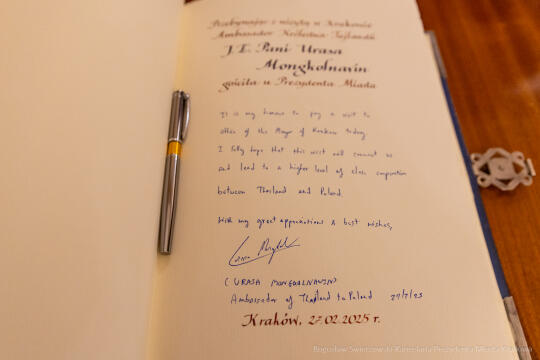 Przebywając z wizytą w Krakowie
Ambasador Królestwa Tajlandii
J.E. Pani Urasa
Mongkolnavin
gościła u Prezydenta Miasta
It is my honour to pay a visit to
office of the Mayor of Krakow today.
I fully hope that this visit will connect us
and lead to a higher level of close cooperation
between Thailand and Poland.
With my great appreciations & best wishes,
(URASA MONGKOLNAVIN)
Ambassador of Thailand to Poland 27/2/25
Kraków, 27.02.2025 r.
Bogusław Świerzowski Kancelaria Prezydenta Miasta Krakowa